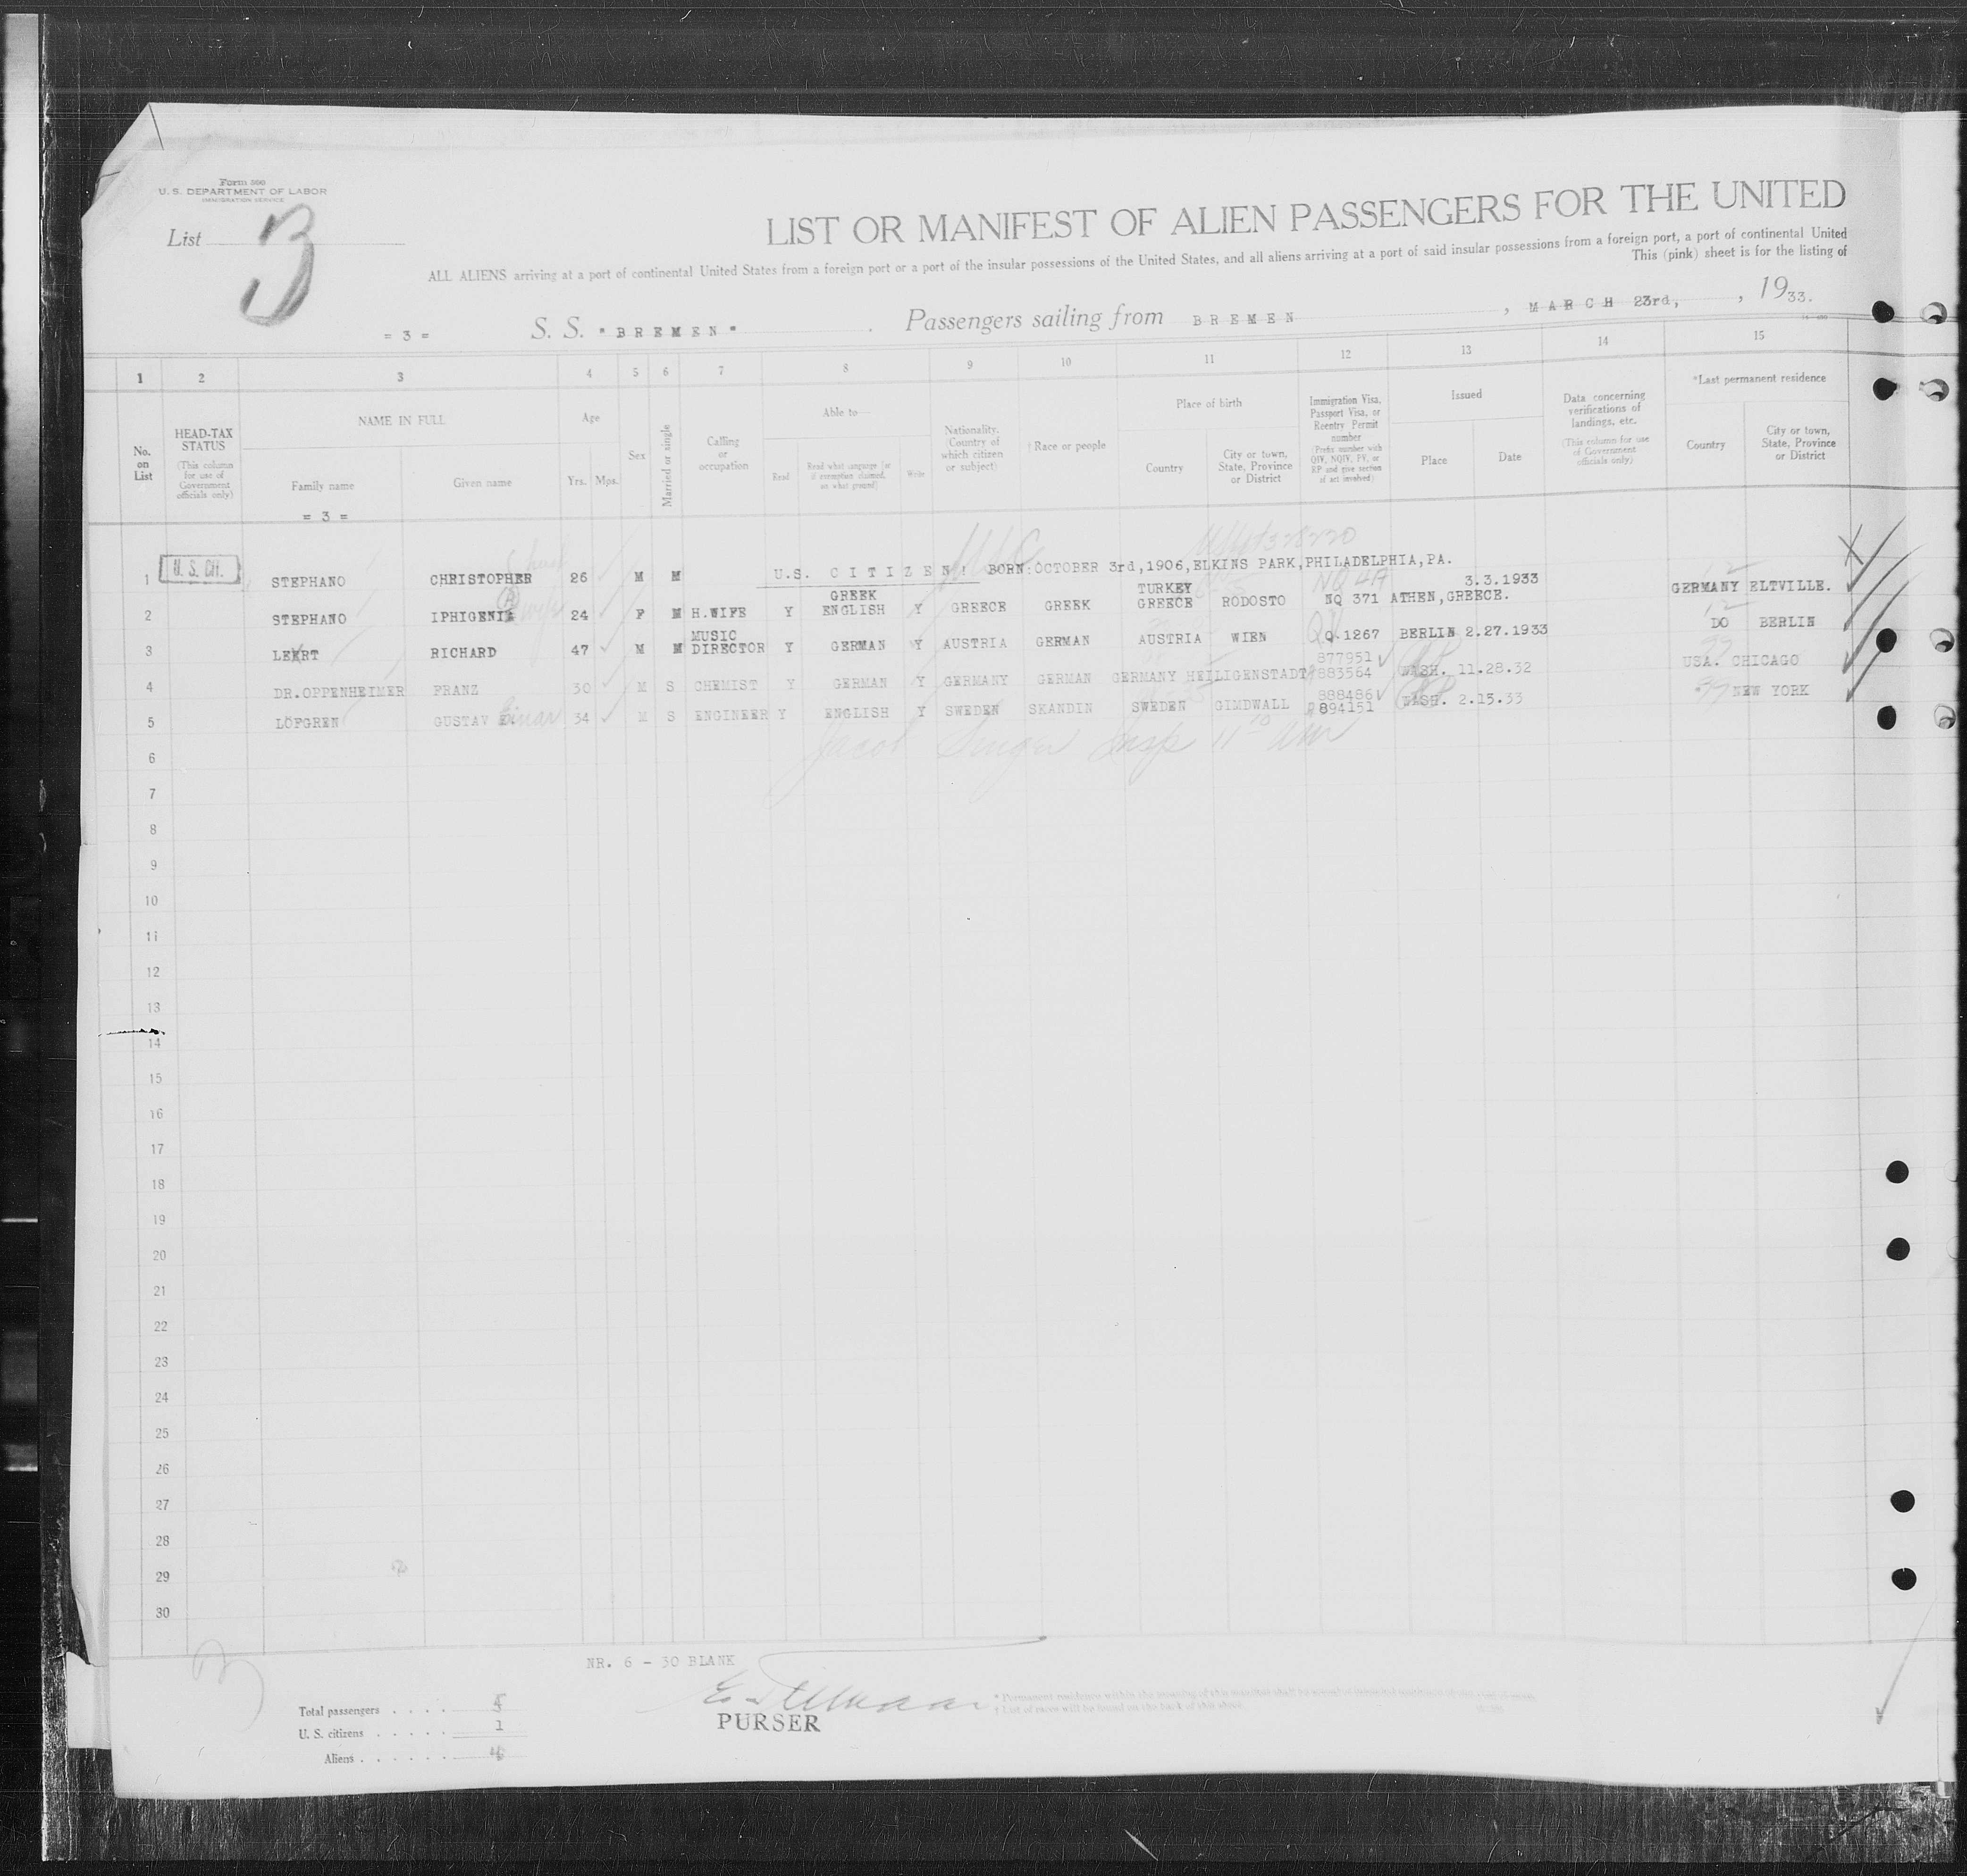 Form 500
U. S. DEPARTMENT OF LABOR
IMMIGRATION SERVICE
List 3
LIST OR MANIFEST OF ALIEN PASSENGERS FOR THE UNITED
ALL ALIENS arriving at a port of continental United States from a foreign port or a port of the insular possessions of the United States, and all aliens arriving at a port of said insular possessions from a foreign port, a port of continental United
This (pink) sheet is for the listing of
= 3 = S. S. "BREMEN" . Passengers sailing from BREMEN , MARCH 23rd, , 1933.
1 2 3 4 5 6 7 8 9 10 11 12 13 14 15
No. on List
HEAD-TAX STATUS
(This column for use of Government officials only)
NAME IN FULL
Family name
Given name
Age
Yrs. Mos.
Sex
Married or single
Calling or occupation
Able to—
Read
Read what language [or if exemption claimed, on what ground]
Write
Nationality. (Country of which citizen or subject)
† Race or people
Place of birth
Country
City or town, State, Province or District
Immigration Visa, Passport Visa, or Reentry Permit number
(Prefix number with QIV, NQIV, PV, or RP and give section of act involved)
Issued
Place
Date
Data concerning verifications of landings, etc.
(This column for use of Government officials only)
*Last permanent residence
Country
City or town, State, Province or District
= 3 =
1 U. S. CH. STEPHANO CHRISTOPHER 26 M M U.S. CITIZEN! BORN:OCTOBER 3rd,1906,ELKINS PARK,PHILADELPHIA,PA.
USC
NQ 4A
2 STEPHANO IPHIGENIA wife 24 F M H.WIFE Y GREEK ENGLISH Y GREECE GREEK TURKEY GREECE RODOSTO NQ 371 ATHEN,GREECE. 3.3.1933 GERMANY ELTVILLE.
3 LEERT RICHARD 47 M M MUSIC DIRECTOR Y GERMAN Y AUSTRIA GERMAN AUSTRIA WIEN Q.1267 BERLIN 2.27.1933 DO BERLIN
4 DR.OPPENHEIMER FRANZ 30 M S CHEMIST Y GERMAN Y GERMANY GERMAN GERMANY HEILIGENSTADT 877951 883564 WASH. 11.28.32 USA. CHICAGO
5 LÖFGREN GUSTAV Einar 34 M S ENGINEER Y ENGLISH Y SWEDEN SKANDIN SWEDEN GIMDWALL 888486 894151 WASH. 2.15.33 NEW YORK
Jacob Singer Insp
6
7
8
9
10
11
12
13
14
15
16
17
18
19
20
21
22
23
24
25
26
27
28
29
30
NR. 6 - 30 BLANK
Total passengers . . . . 5
U. S. citizens . . . . . 1
Aliens . . . . . . 4
PURSER
* Permanent residence within the meaning of this manifest shall be actual or intended residence of one year or more.
† List of races will be found on the back of this sheet.